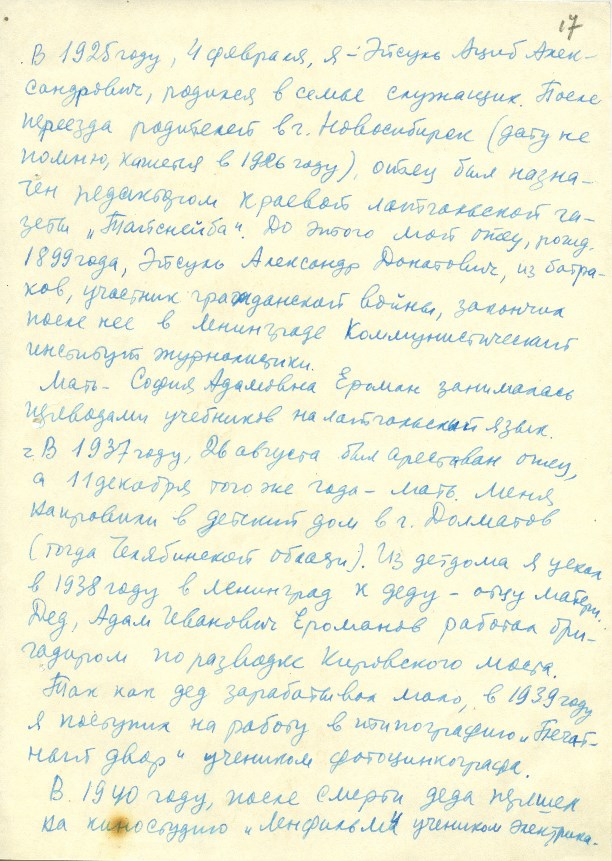 17
В 1925 году, 4 февраля, я – Эйсуль Ациб Алек-
сандрович, родился в семье служащих. После
переезда родителей в г. Новосибирск (дату не
помню, кажется в 1926 году), отец был назна-
чен редактором краевой латгальской га-
зеты „Тайснейба“. До этого мой отец, рожд.
1899 года, Эйсуль Александр Донатович, из батра-
ков, участник гражданской войны, закончил
после нее в Ленинграде Коммунистический
институт журналистики.
Мать – София Адамовна Ероман занималась
переводами учебников на латгальский язык.
В 1937 году, 26 августа был арестован отец,
а 11 декабря того же года – мать. Меня
направили в детский дом в г. Долматов
(тогда Челябинской области). Из детдома я уехал
в 1938 году в Ленинград к деду – отцу матери.
Дед, Адам Иванович Ероманов работал бри-
гадиром по разводке Кировского моста.
Так как дед зарабатывал мало, в 1939 году
я поступил на работу в типографию „Печат-
ный двор“ учеником фотоцинкографа.
В 1940 году, после смерти деда перешел
на киностудию „Ленфильм“ учеником электрика.